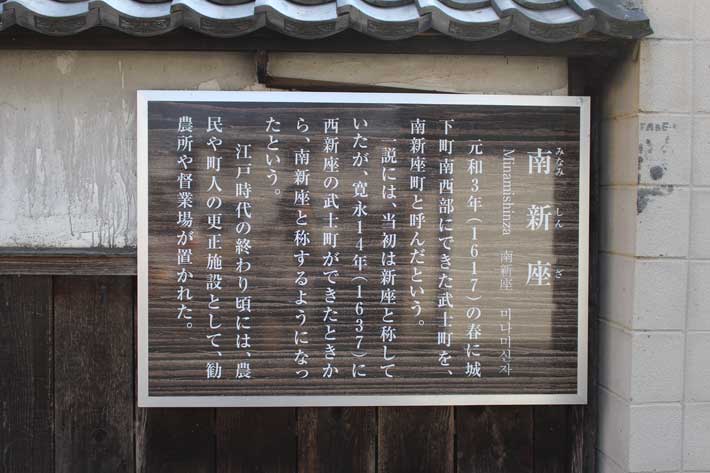 南新座
みなみしんざ
Minamishinza 南新座 미나미신자
元和3年(1617)の春に城
下町南西部にできた武士町を、
南新座町と呼んだという。
一説には、当初は新座と称して
いたが、寛永14年(1637)に
西新座の武士町ができたときか
ら、南新座と称するようになっ
たという。
江戸時代の終わり頃には、農
民や町人の更正施設として、勧
農所や督業場が置かれた。